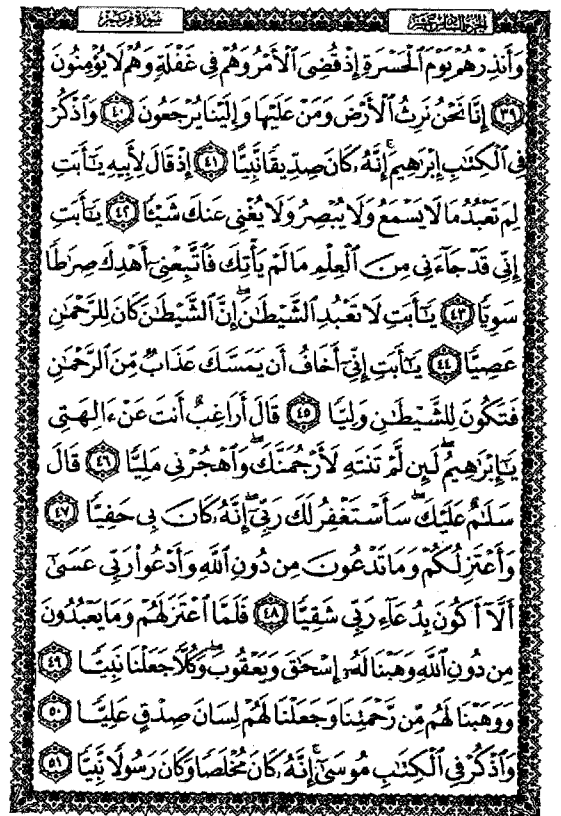 سورة مريم
الجزء السادس عشر
وَأَنذِرْهُمْ يَوْمَ الْحَسْرَةِ إِذْ قُضِيَ الْأَمْرُ وَهُمْ فِي غَفْلَةٍ وَهُمْ لَا يُؤْمِنُونَ
٣٩ إِنَّا نَحْنُ نَرِثُ الْأَرْضَ وَمَنْ عَلَيْهَا وَإِلَيْنَا يُرْجَعُونَ ٤٠ وَاذْكُرْ
فِي الْكِتَٰبِ إِبْرَٰهِيمَ ۚ إِنَّهُ كَانَ صِدِّيقًا نَّبِيًّا ٤١ إِذْ قَالَ لِأَبِيهِ يَٰٓأَبَتِ
لِمَ تَعْبُدُ مَا لَا يَسْمَعُ وَلَا يُبْصِرُ وَلَا يُغْنِي عَنكَ شَيْـًٔا ٤٢ يَٰٓأَبَتِ
إِنِّي قَدْ جَآءَنِي مِنَ الْعِلْمِ مَا لَمْ يَأْتِكَ فَاتَّبِعْنِيٓ أَهْدِكَ صِرَٰطًا
سَوِيًّا ٤٣ يَٰٓأَبَتِ لَا تَعْبُدِ الشَّيْطَٰنَ ۖ إِنَّ الشَّيْطَٰنَ كَانَ لِلرَّحْمَٰنِ
عَصِيًّا ٤٤ يَٰٓأَبَتِ إِنِّيٓ أَخَافُ أَن يَمَسَّكَ عَذَابٌ مِّنَ الرَّحْمَٰنِ
فَتَكُونَ لِلشَّيْطَٰنِ وَلِيًّا ٤٥ قَالَ أَرَاغِبٌ أَنتَ عَنْ ءَالِهَتِي
يَٰٓإِبْرَٰهِيمُ ۖ لَئِن لَّمْ تَنتَهِ لَأَرْجُمَنَّكَ ۖ وَاهْجُرْنِي مَلِيًّا ٤٦ قَالَ
سَلَٰمٌ عَلَيْكَ ۖ سَأَسْتَغْفِرُ لَكَ رَبِّيٓ ۖ إِنَّهُ كَانَ بِي حَفِيًّا ٤٧
وَأَعْتَزِلُكُمْ وَمَا تَدْعُونَ مِن دُونِ اللَّهِ وَأَدْعُوا۟ رَبِّي عَسَىٰٓ
أَلَّآ أَكُونَ بِدُعَآءِ رَبِّي شَقِيًّا ٤٨ فَلَمَّا اعْتَزَلَهُمْ وَمَا يَعْبُدُونَ
مِن دُونِ اللَّهِ وَهَبْنَا لَهُۥٓ إِسْحَٰقَ وَيَعْقُوبَ ۖ وَكُلًّا جَعَلْنَا نَبِيًّا ٤٩
وَوَهَبْنَا لَهُم مِّن رَّحْمَتِنَا وَجَعَلْنَا لَهُمْ لِسَانَ صِدْقٍ عَلِيًّا ٥٠
وَاذْكُرْ فِي الْكِتَٰبِ مُوسَىٰٓ ۚ إِنَّهُ كَانَ مُخْلَصًا وَكَانَ رَسُولًا نَّبِيًّا ٥١